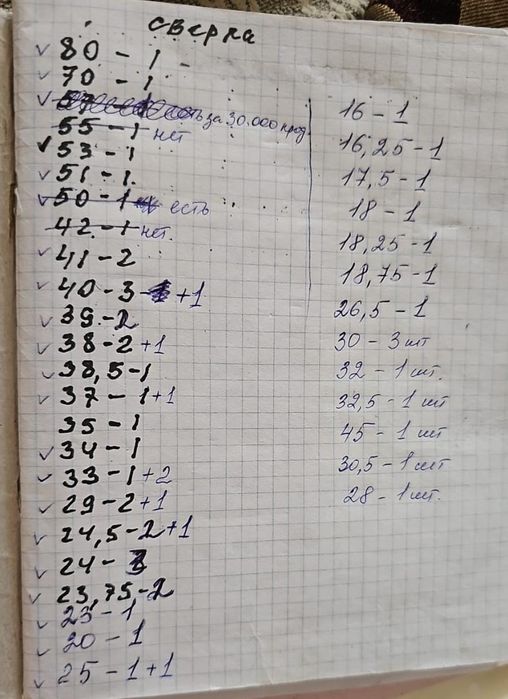 сверка
80 - 1
70 - 1
за 30.000 прод
55 - 1 нет
53 - 1
51 - 1
50 - 1 есть
42 - 1 нет.
41 - 2
40 - 3 +1
39 - 2
38 - 2 +1
38,5 - 1
37 - 1 +1
35 - 1
34 - 1
33 - 1 +2
29 - 2 +1
24,5 - 2 +1
24 - 3
23,75 - 2
23 - 1
20 - 1
25 - 1 +1
16 - 1
16,25 - 1
17,5 - 1
18 - 1
18,25 - 1
18,75 - 1
26,5 - 1
30 - 3 шт
32 - 1 шт.
32,5 - 1 шт
45 - 1 шт
30,5 - 1 шт
28 - 1 шт.